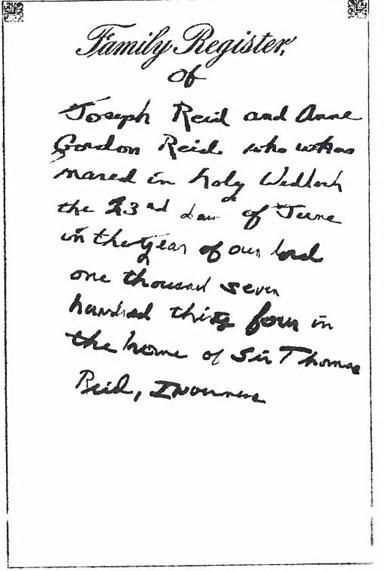 Family Register,
Of
Joseph Reid and Anne
Gordon Reid who whas
mared in holy Wedlock
the 23rd day of June
in the year of our lord
one thousand seven
hundred thirty four in
the home of Sir Thomas
Reid, Inverness